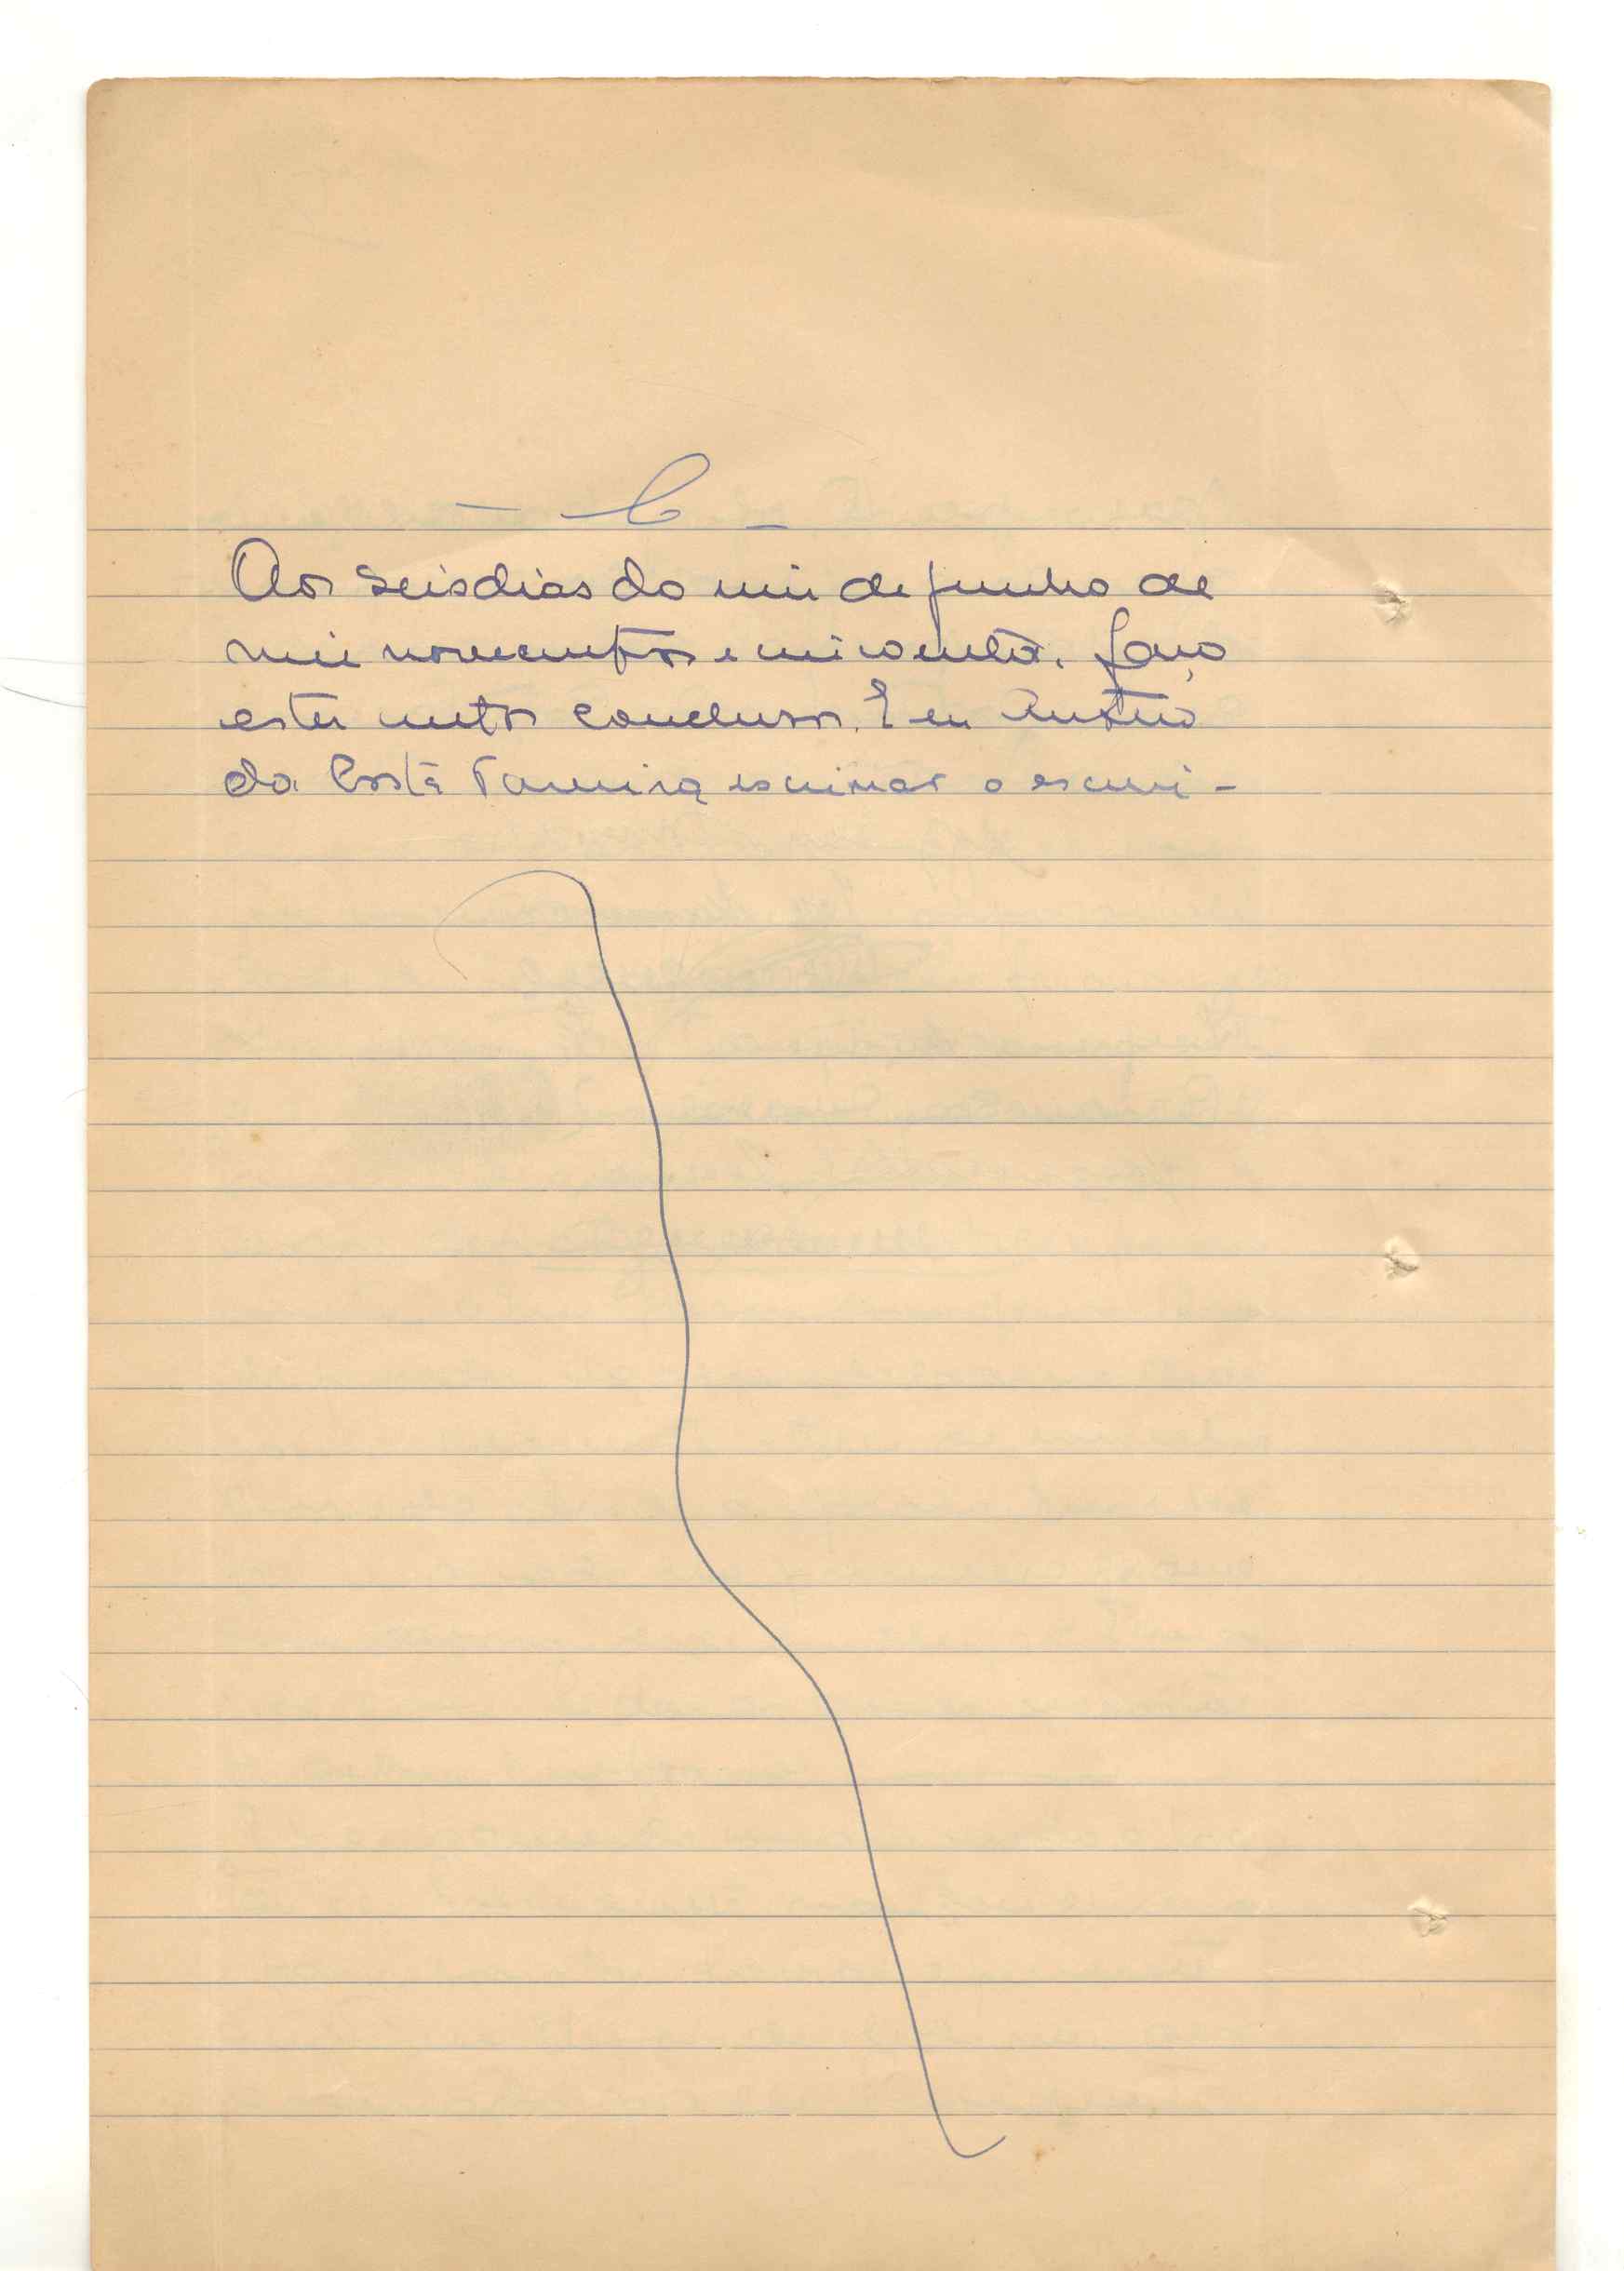 — C —
Aos seis dias do mês de junho de
mil novecentos e cincoenta. faço
estes autos conclusos. E eu Antero
da Costa escrivão o escrevi -